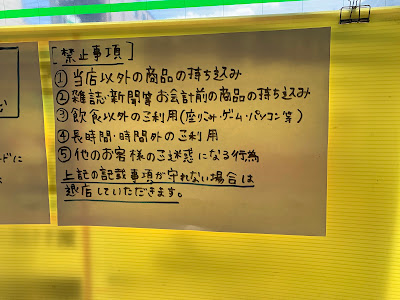 [禁止事項]
①当店以外の商品の持ち込み
②雑誌・新聞等お会計前の商品の持ち込み
③飲食以外のご利用(座りこみ・ゲーム・パソコン等)
④長時間・時間外のご利用
⑤他のお客様のご迷惑になる行為
上記の記載事項が守れない場合は
退店していただきます。
ードに